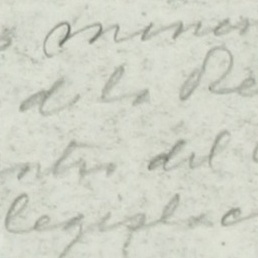 s minor
de la Re
ntro del
legislac